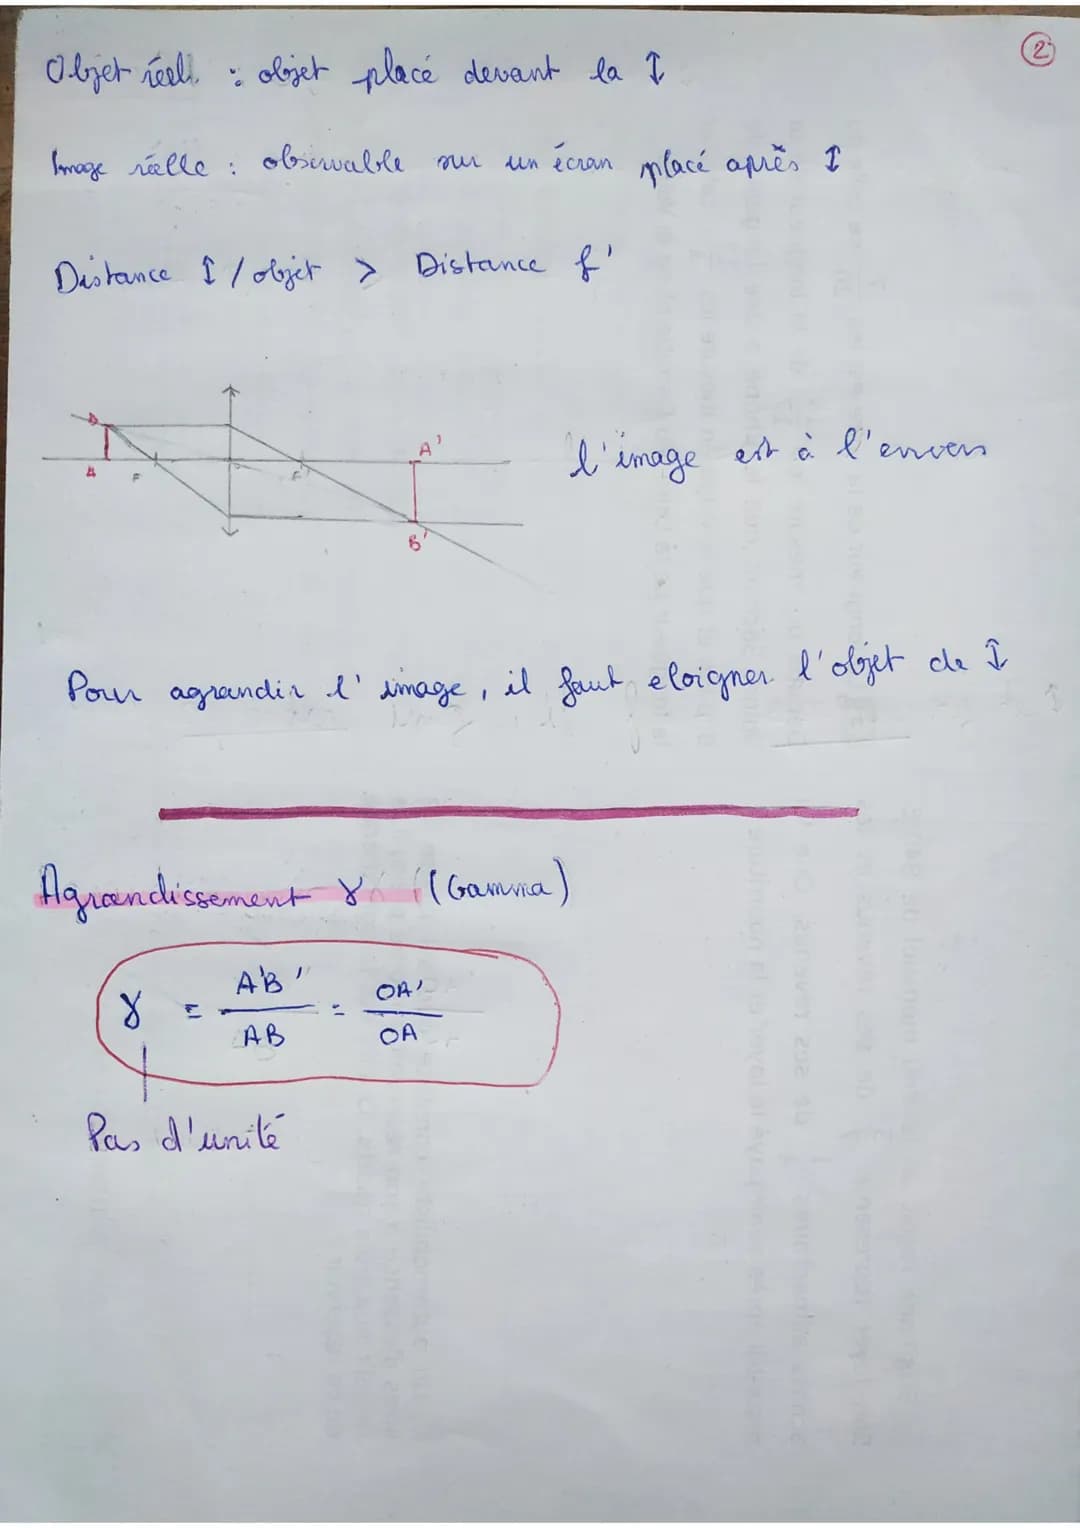 2
Objet réel : objet placé devant la ↕
Image réelle : observable sur un écran placé après ↕
Distance ↕ / objet > Distance f'
B
A
F
F'
A'
B'
l'image est à l'envers
Pour agrandir l'image, il faut eloigner l'objet de ↕
Agrandissement γ (Gamma)
γ = A'B' / AB = OA' / OA
Pas d'unité